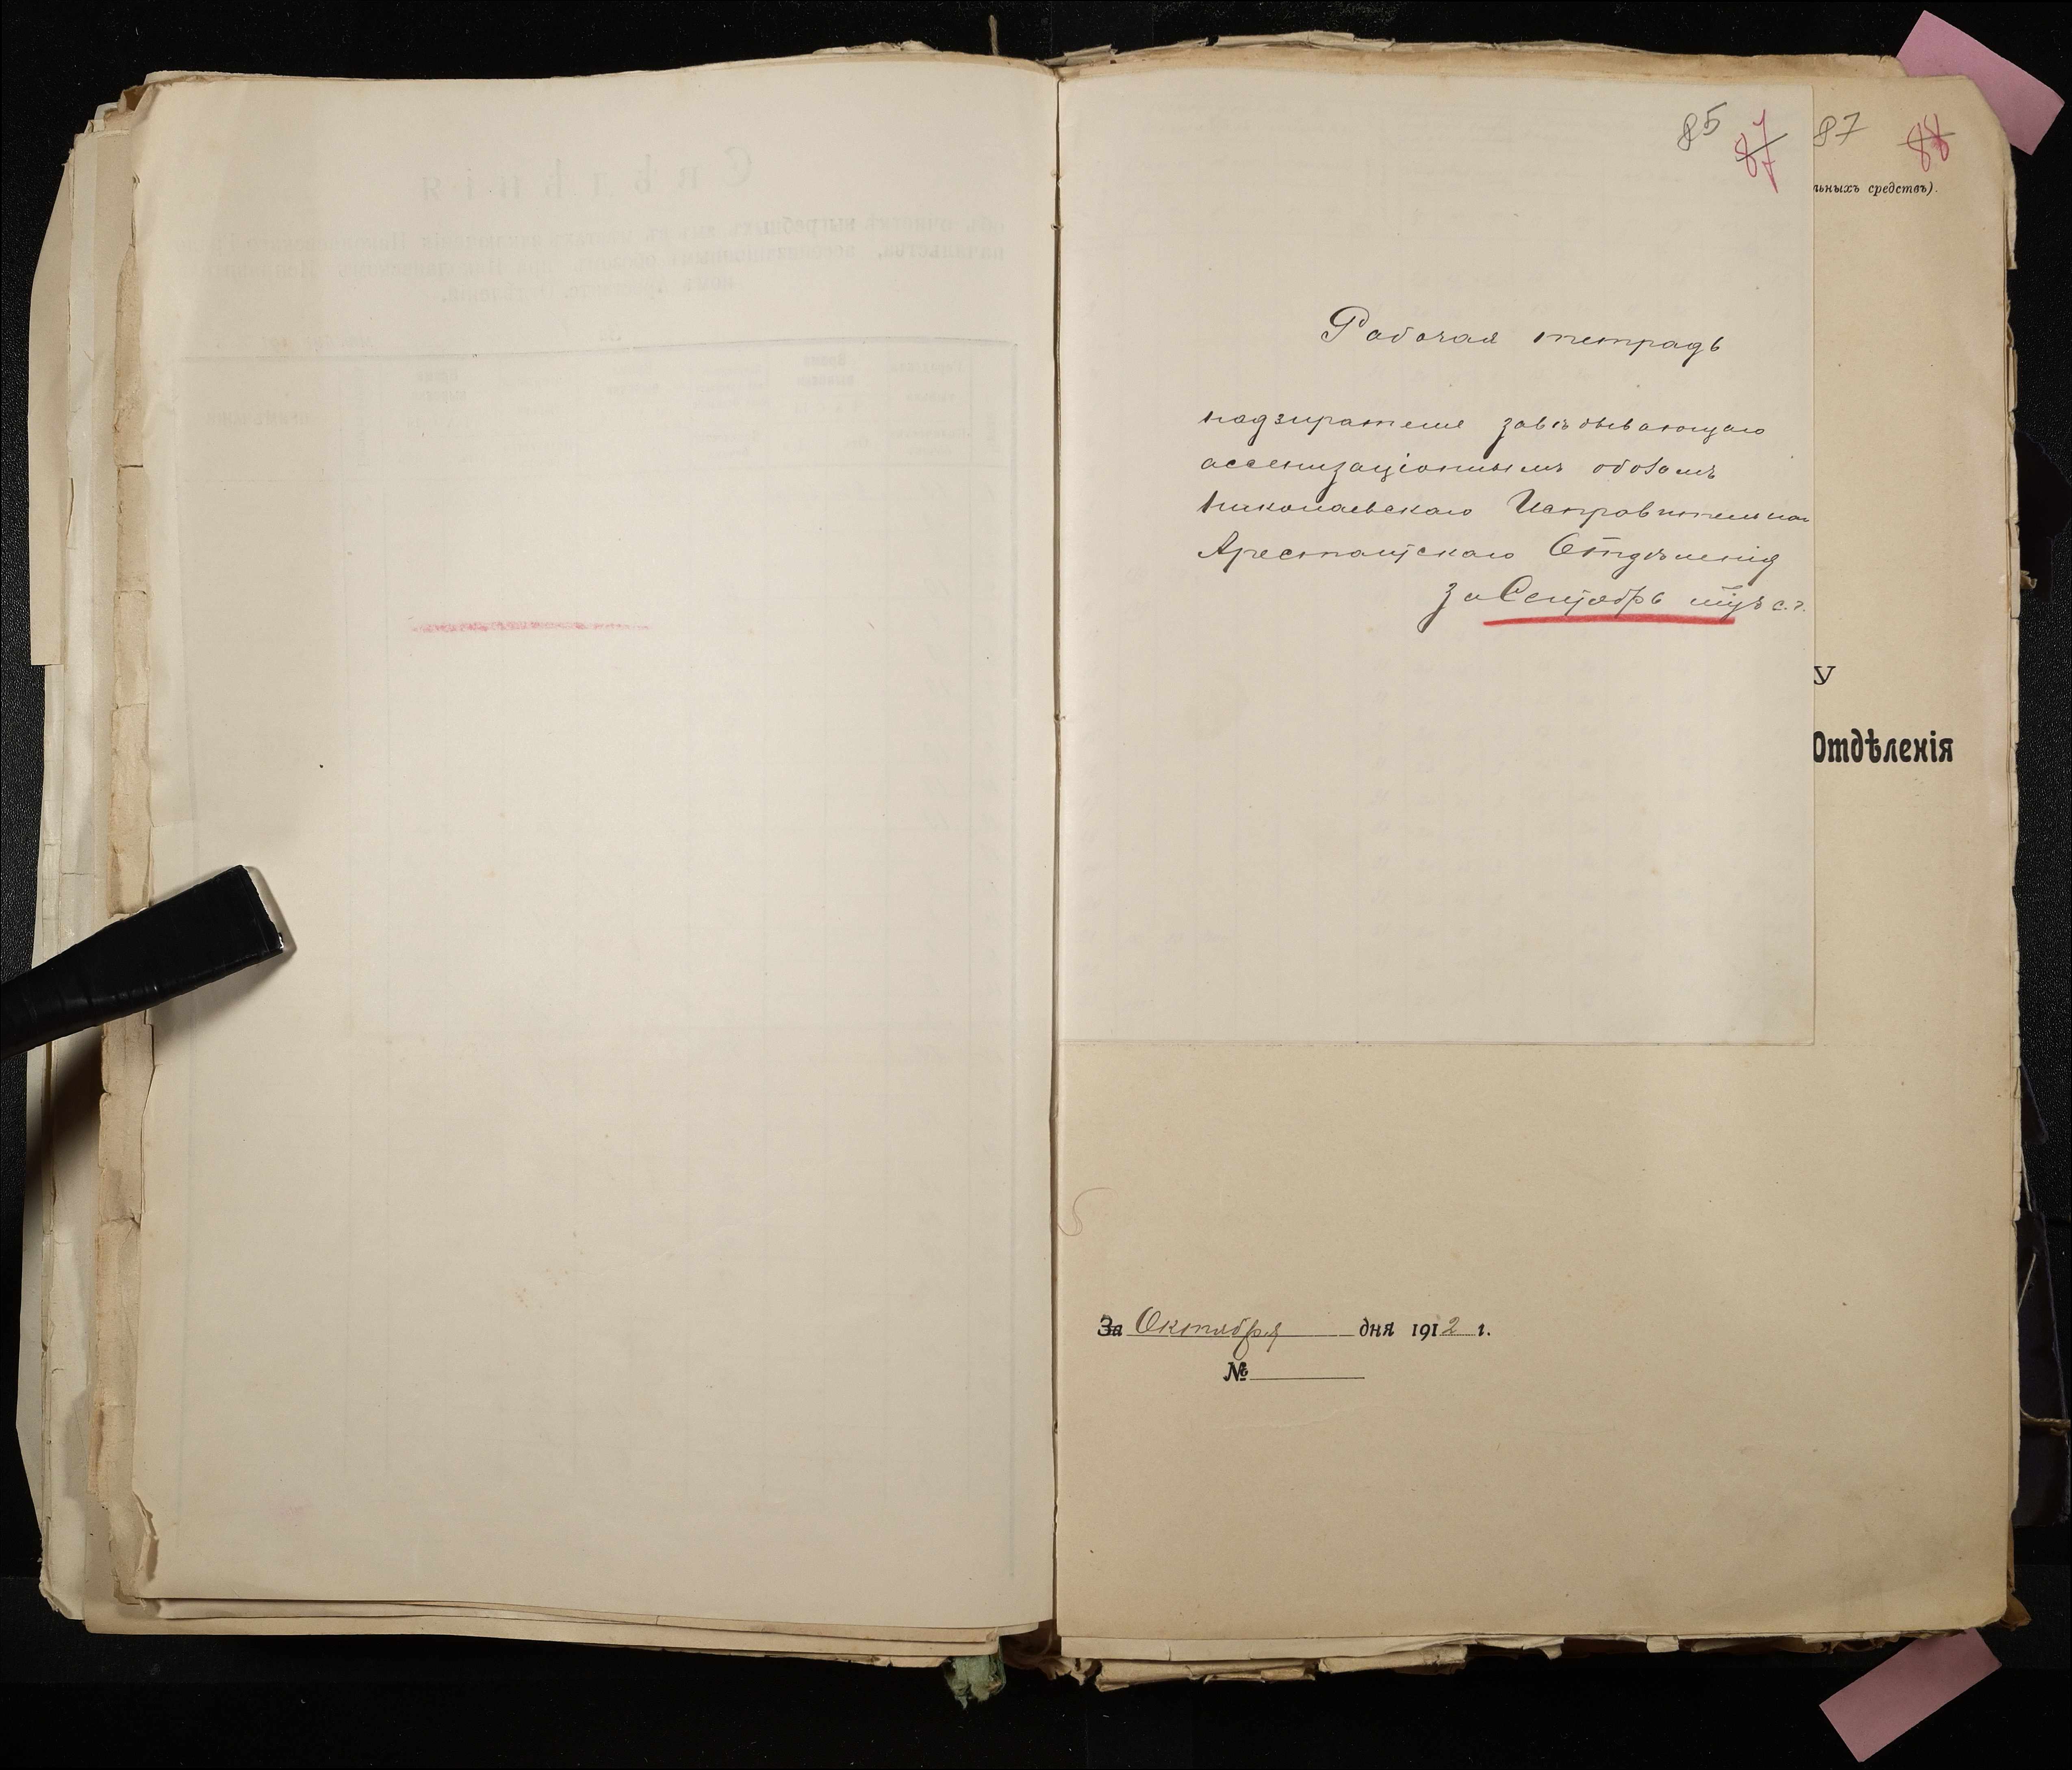 85 87 87 88
льныхъ средствъ).
Рабочая тетрадь
надзирателя завѣдывающаго
ассенизаціоннымъ обозомъ
Николаевскаго Исправительнаго
Арестантскаго Отдѣленія
за Сентябрь мц҃ъ с. г.
У
Отдѣленія
За Октября дня 1912 г.
№